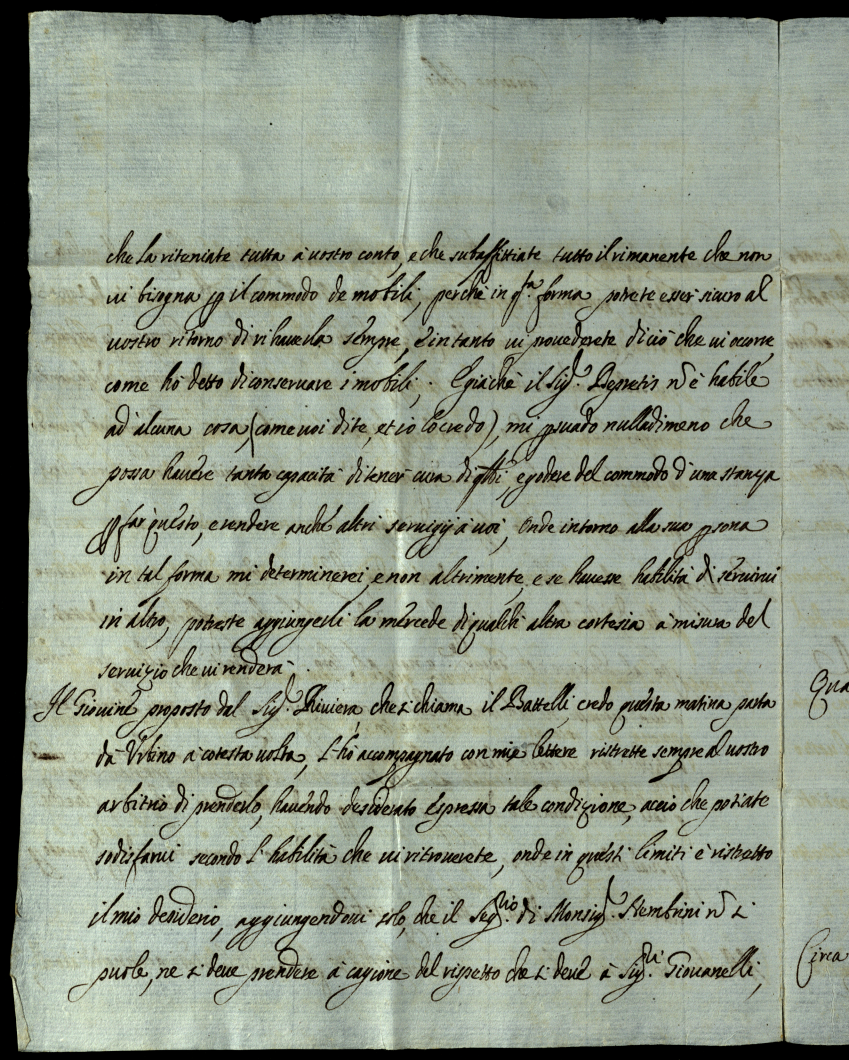 che la riteniate tutta à vostro conto, e che subaffittiate tutto il rimanente che non
vi bisogna p il commodo de mobili, perche in q.ta forma potrete esser sicuro al
vostro ritorno di rihaverla sempre, è in tanto vi provederete di ciò che vi occorre,
come hò detto di conservare i mobili. E giàche il Sig.r Depretis nõ è habile
ad' alcuna cosa, (come voi dite, et io lo credo), mi psuado nulladimeno che
possa havere tanta capacità di tener cura di q.lli, e godere del commodo d'una stanza
p far questo, e rendere anche altri servigij à voi, onde intorno alla sua psona
in tal forma mi determinerei, e non altrimente, e se havesse habilità di servirvi
in altro, potreste aggiungerli la mercede di qualch' altra cortesia à misura del
servizio che vi renderà.
Il Giovine proposto dal Sig.r Riviera, che si chiama il Battelli, credo questa matina parta
dà Urbino à cotesta volta, l'hò accompagnato con mie lettere ristrette sempre al vostro
arbitrio di prenderlo, havendo desiderato espressa tale condizione, acciò che potiate
sodisfarvi secondo l'habilità che vi ritroverete, onde in questi limiti è ristretto
il mio desiderio, aggiungendovi solo, che il Seg.rio di Monsig.r Stembrini nõ si
puole, ne si deve prendere à cagione del rispetto che si deve à Sig.ri Giovanelli,
Qua
Circa